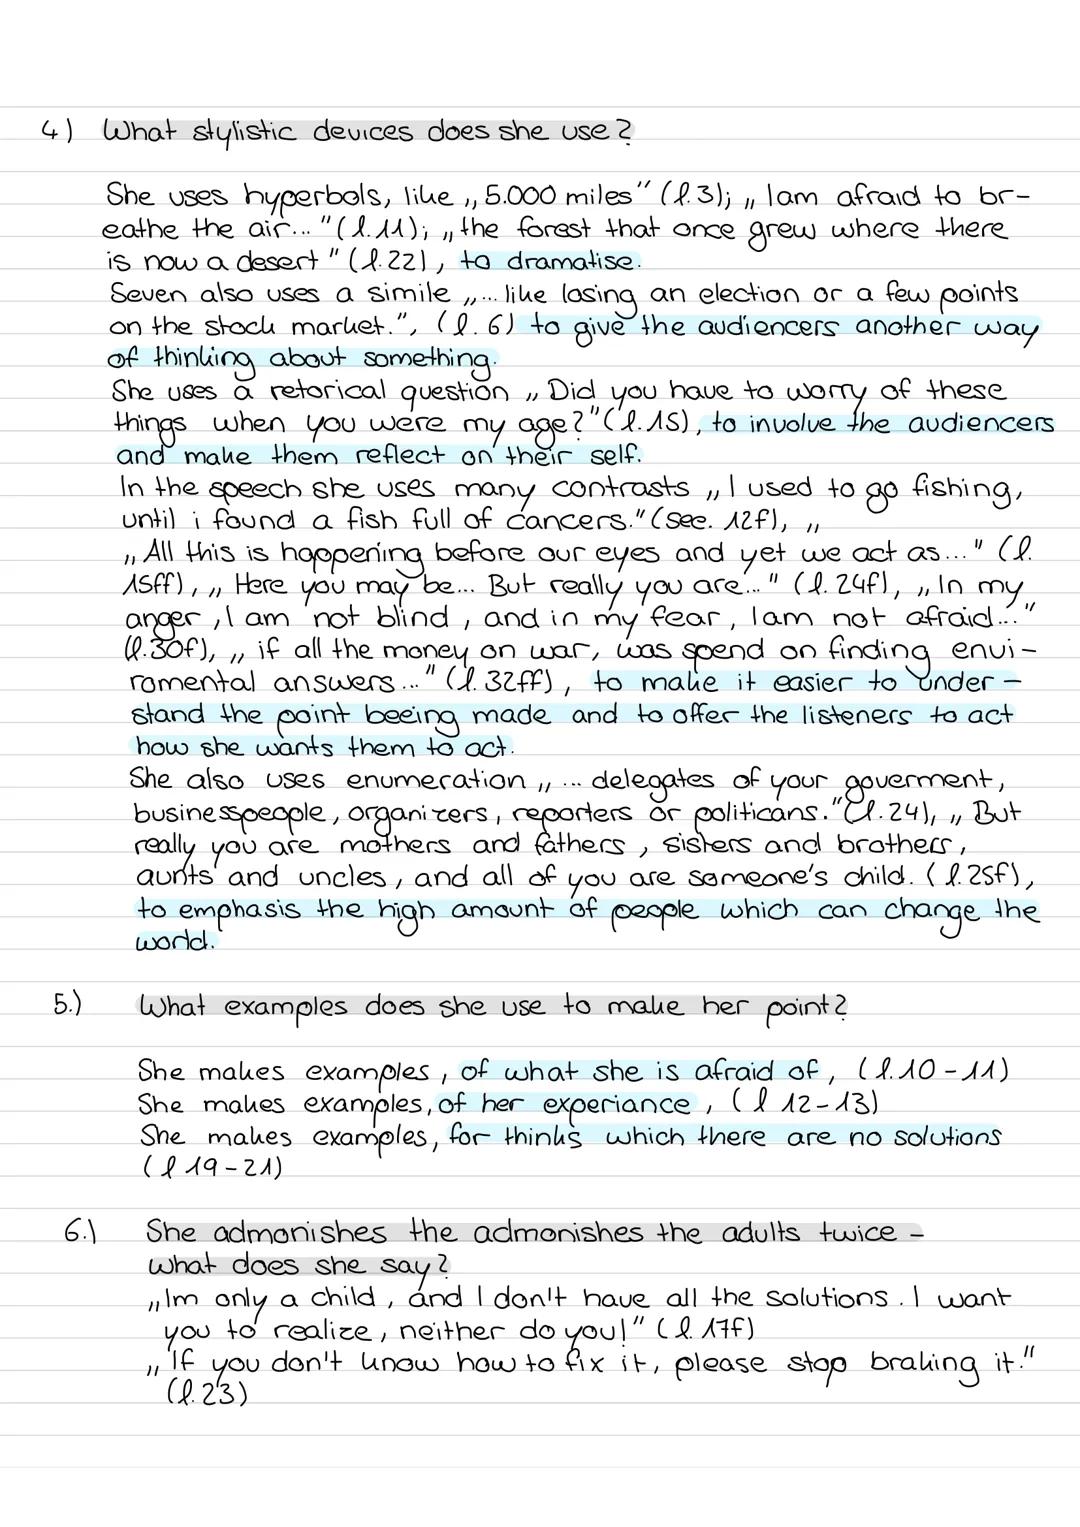 4) What stylistic devices does she use?
She uses hyperbols, like „5.000 miles" (l.3); „Iam afraid to br-
eathe the air..."(l.11); „the forest that once grew where there
is now a desert" (l.22), to dramatise.
Seven also uses a simile „... like losing an election or a few points
on the stock market.", (l.6) to give the audiencers another way
of thinking about something.
She uses a retorical question „Did you have to worry of these
things when you were my age?"(l.15), to involve the audiencers
and make them reflect on their self.
In the speech she uses many contrasts „I used to go fishing,
until i found a fish full of cancers."(see. 12f), „
„All this is happening before our eyes and yet we act as..." (l.
15ff), „Here you may be... But really you are..." (l.24f), „In my
anger, I am not blind, and in my fear, Iam not afraid..."
(l.30f), „if all the money on war, was spend on finding envi-
romental answers..." (l.32ff), to make it easier to under-
stand the point beeing made and to offer the listeners to act
how she wants them to act.
She also uses enumeration „... delegates of your goverment,
businesspeople, organizers, reporters or politicans."(l.24), „But
really you are mothers and fathers, sisters and brothers,
aunts and uncles, and all of you are someone's child. (l.25f),
to emphasis the high amount of people which can change the
world.
5.) What examples does she use to make her point?
She makes examples, of what she is afraid of, (l.10-11)
She makes examples, of her experiance, (l 12-13)
She makes examples, for thinks which there are no solutions
(l 19-21)
6.) She admonishes the admonishes the adults twice -
what does she say?
„Im only a child, and I don't have all the solutions. I want
you to realize, neither do you!" (l.17f)
„If you don't know how to fix it, please stop braking it."
(l.23)